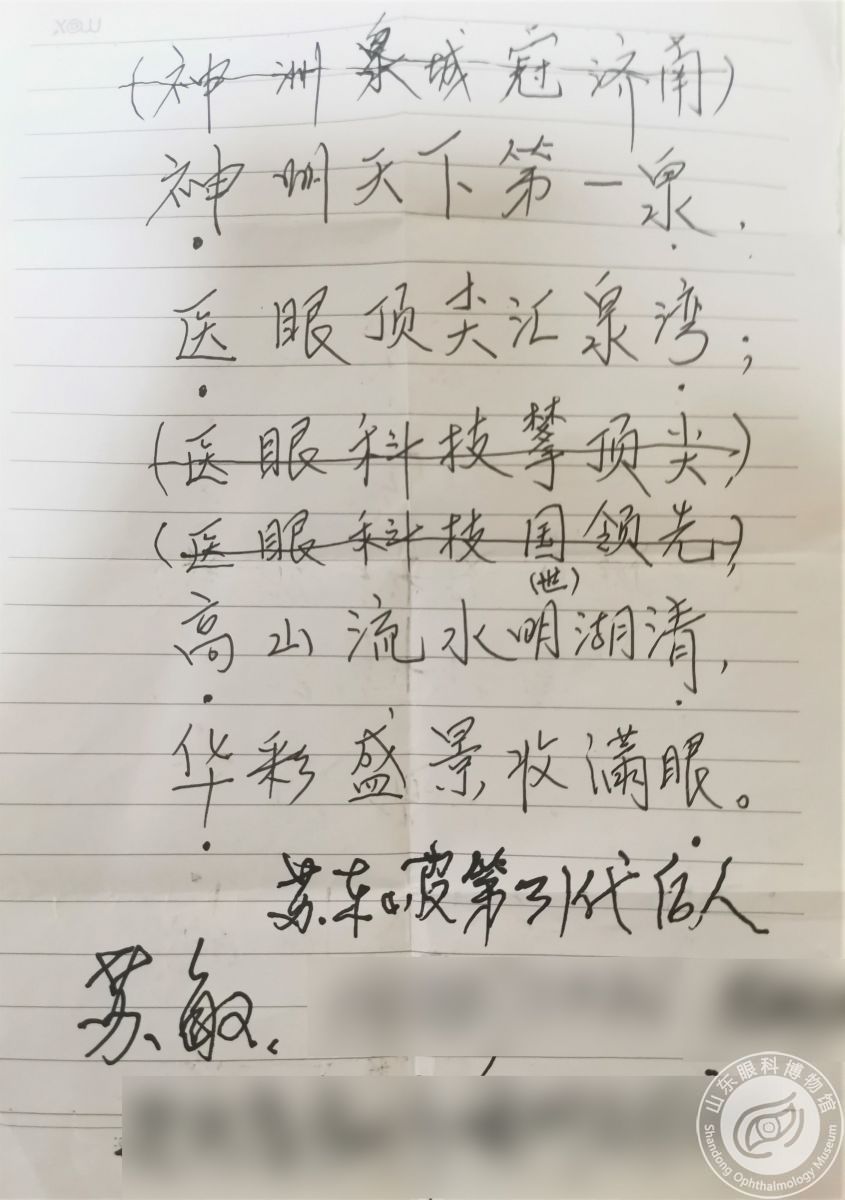 (神洲泉城冠济南)
神州天下第一泉,
医眼顶尖汇泉湾;
(医眼科技攀顶尖,)
(医眼科技国领先,)
(世)
高山流水明湖清,
华彩盛景收满眼。
苏东坡第31代后人
苏敏.
山东眼科博物馆
Shandong Ophthalmology Museum